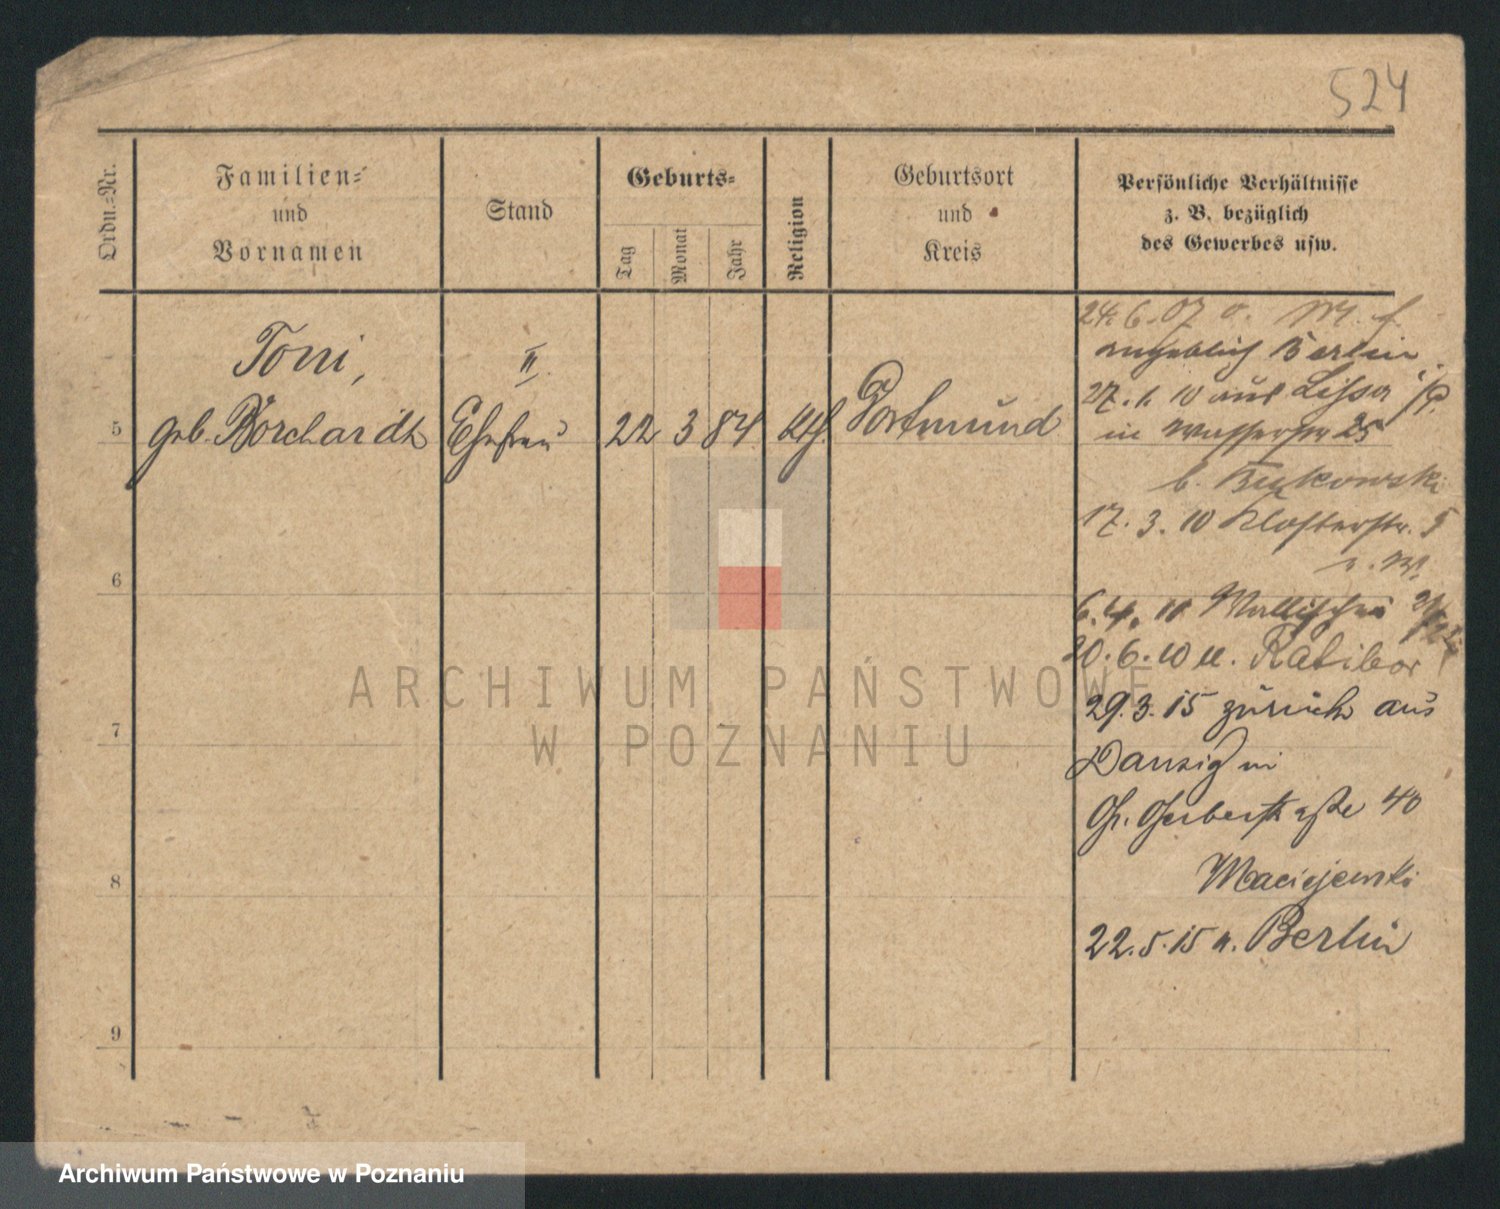 524
Ordn.-Nr.
Familien-
und
Vornamen
Stand
Geburts-
Tag
Monat
Jahr
Religion
Geburtsort
und
Kreis
Persönliche Verhältnisse
z. B. bezüglich
des Gewerbes usw.
Toni,
II.
5 geb. Borchardt Ehefrau 22 3 84 kth. Dortmund
6
7
8
9
24. 6. 07
angeblich Berlin
27. 1. 10 aus Lissa
in Wasserstr 25
b. Bukowski
17. 3. 10 Klosterstr. 5
6. 4. 10 Wallischei
20. 6. 10 n. Ratibor
29. 3. 15 zurück aus
Danzig in
Gr. Gerberstraße 40
Maciejewski
22. 5. 15 n. Berlin
ARCHIWUM PAŃSTWOWE
W POZNANIU
Archiwum Państwowe w Poznaniu